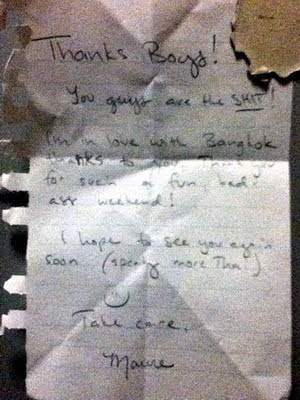 Thanks Boys!
You guys are the SHIT!
I'm in love with Bangkok
thanks to you. Thank you
for such a fun, bad-
ass weekend!
I hope to see you again
soon (speaking more Thai!)
Take care,